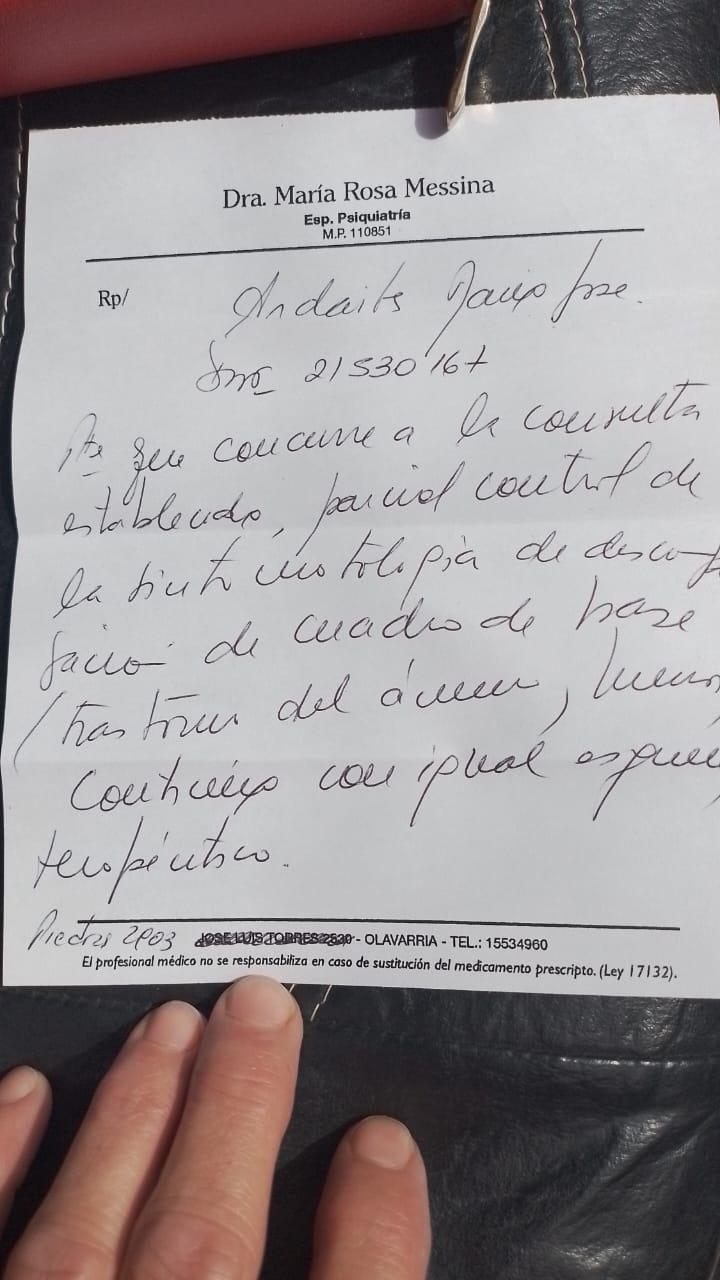 Dra. María Rosa Messina
Esp. Psiquiatría
M.P. 110851
Rp/
21530167
Pte que concurre a la consulta
establecido, parcial control de
la sintomatología de descom
de cuadro de base
(trastorno del ánimo,
Continúa con igual esque
terapéutico.
Piedras 2903 JOSE LUIS TORRES 2530 - OLAVARRIA - TEL.: 15534960
El profesional médico no se responsabiliza en caso de sustitución del medicamento prescripto. (Ley 17132).